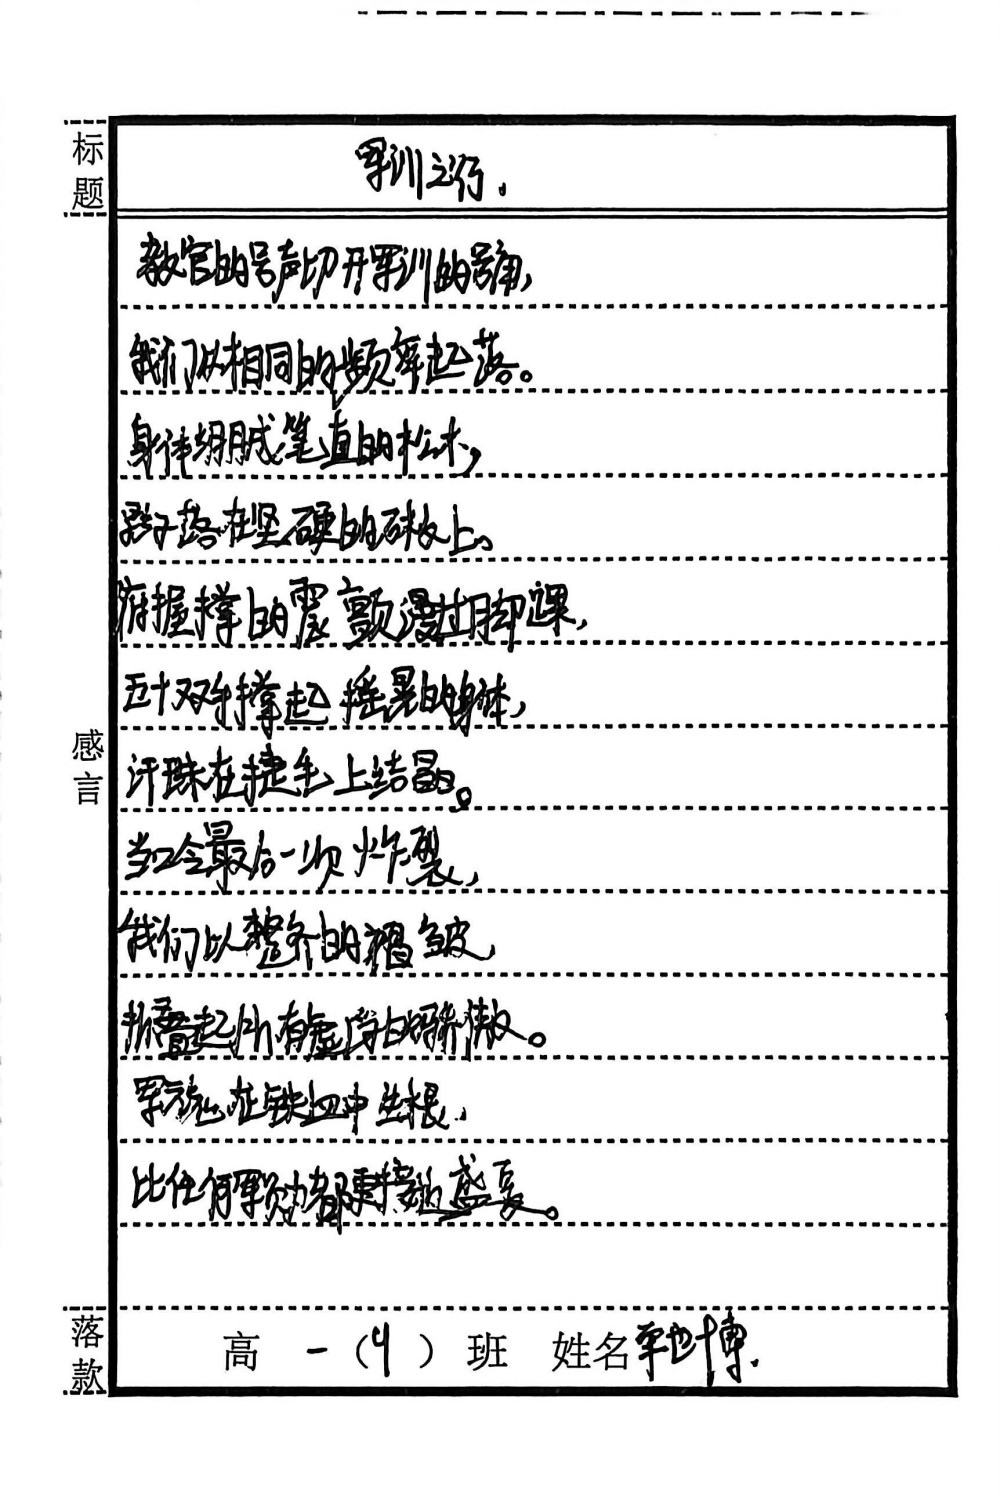 标题
军训之行.
教官的号声切开军训的号角,
我们以相同的频率起落。
身体绷成笔直的松木,
影子落在坚硬的砖板上。
俯握撑的震颤漫过脚踝,
五十双手撑起摇晃的身体,
汗珠在捷毛上结晶。
当口令最后一次炸裂,
我们以整齐的褶皱,
折叠起所有虚浮的骄傲。
军魂在铁血中生根,
比任何军勋都更接近盛夏。
感言
落款
高一(4)班 姓名 世博.